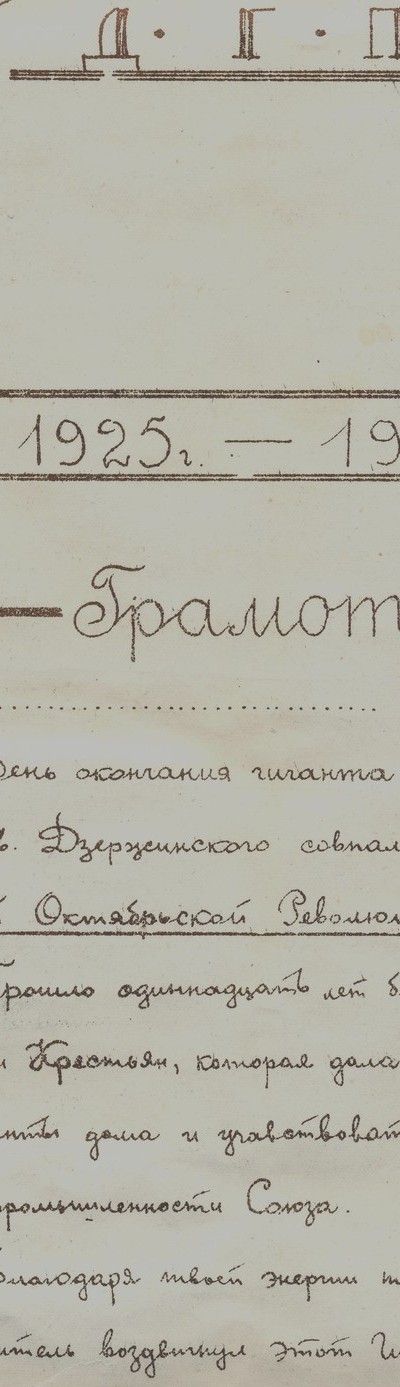 Д. Г. П
1925г. — 19
— Грамот
День окончания гиганта
Дзержинского совпал
Октябрьской Революц
Прошло одиннадцать лет б
и Крестьян, которая дала
дома и учавствоват
промышленности Союза.
благодаря твоей энергии
итель воздвигнул этот